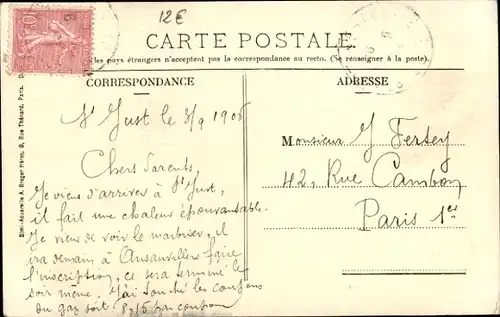 12€
CARTE POSTALE
les pays étrangers n'acceptent pas la correspondance au recto. (Se renseigner à la poste).
CORRESPONDANCE
ADRESSE
St Just le 3/9 1906
Chers Parents,
Je viens d'arriver à St Just,
il fait une chaleur épouvantable.
Je viens de voir le marbrier, il
ira demain à Ansauvillers faire
l'inscription, ce sera terminé le
soir même. J'ai touché les coupons
du gaz soit 8,15 par coupon
Monsieur J Fersey
42, Rue Cambon
Paris 1er
Simi-Aquarelle A. Breger frères, 9, Rue Thénard, Paris.